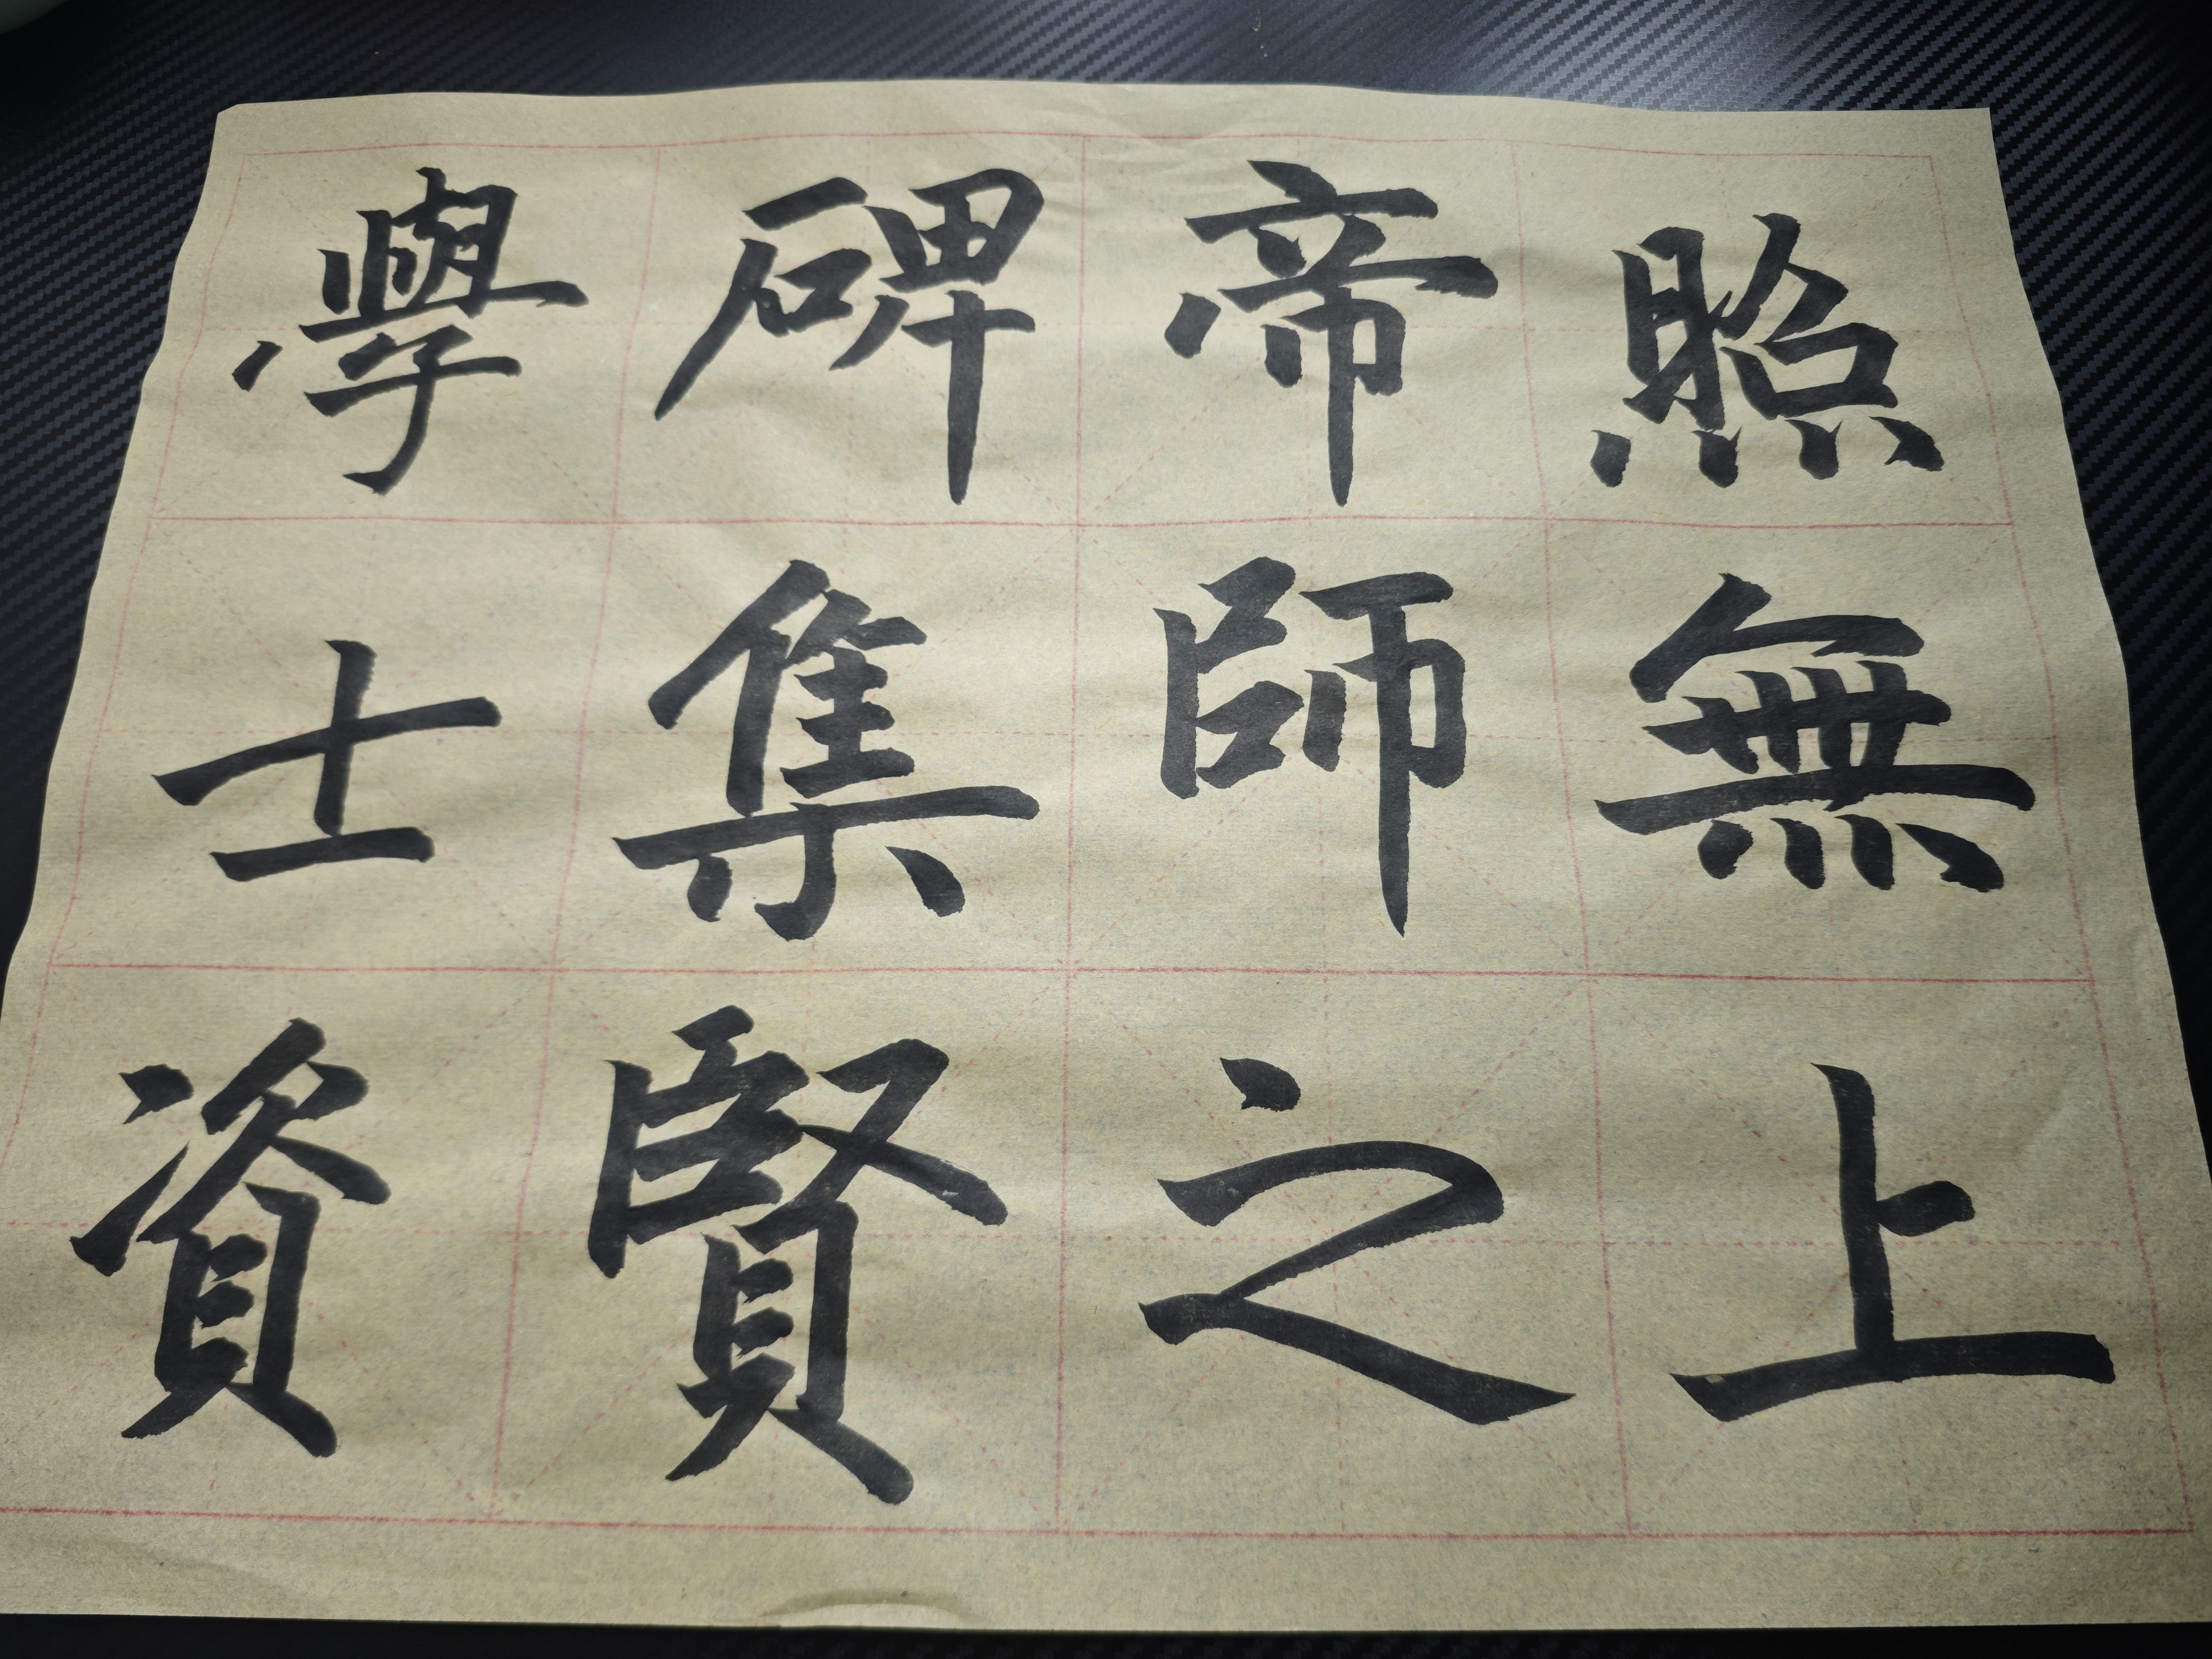 照無上
帝師之
碑集賢
學士資